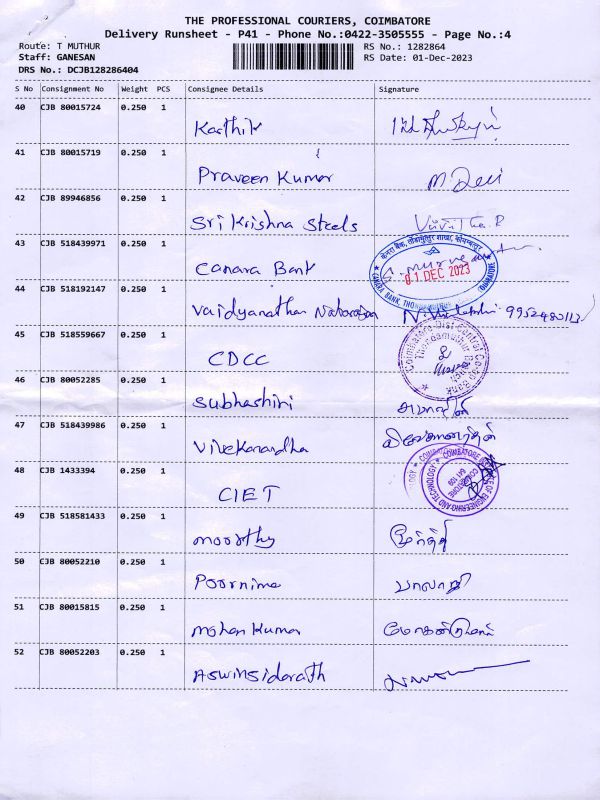 THE PROFESSIONAL COURIERS, COIMBATORE
Delivery Runsheet - P41 - Phone No.:0422-3505555 - Page No.:4
Route: T MUTHUR RS No.: 1282864
Staff: GANESAN RS Date: 01-Dec-2023
DRS No.: DCJB128286404
S No Consignment No Weight PCS Consignee Details Signature
40 CJB 80015724 0.250 1
Karthik
41 CJB 80015719 0.250 1
Praveen Kumar M. Devi
42 CJB 89946856 0.250 1
Sri Krishna Steels
43 CJB 518439971 0.250 1
Canara Bank 01 DEC 2023
44 CJB 518192147 0.250 1
Vaidyanathan Natarajan
45 CJB 518559667 0.250 1
CDCC Coimbatore Dist. Central Co-op Bank
46 CJB 80052285 0.250 1
Subhashini
47 CJB 518439986 0.250 1
Vivekanandha
48 CJB 1433394 0.250 1
CIET
49 CJB 518581433 0.250 1
moorthy மூர்த்தி
50 CJB 80052210 0.250 1
Poornima பாலாஜி
51 CJB 80015815 0.250 1
Mohan Kumar மோகன்குமார்
52 CJB 80052203 0.250 1
Aswinsidarath